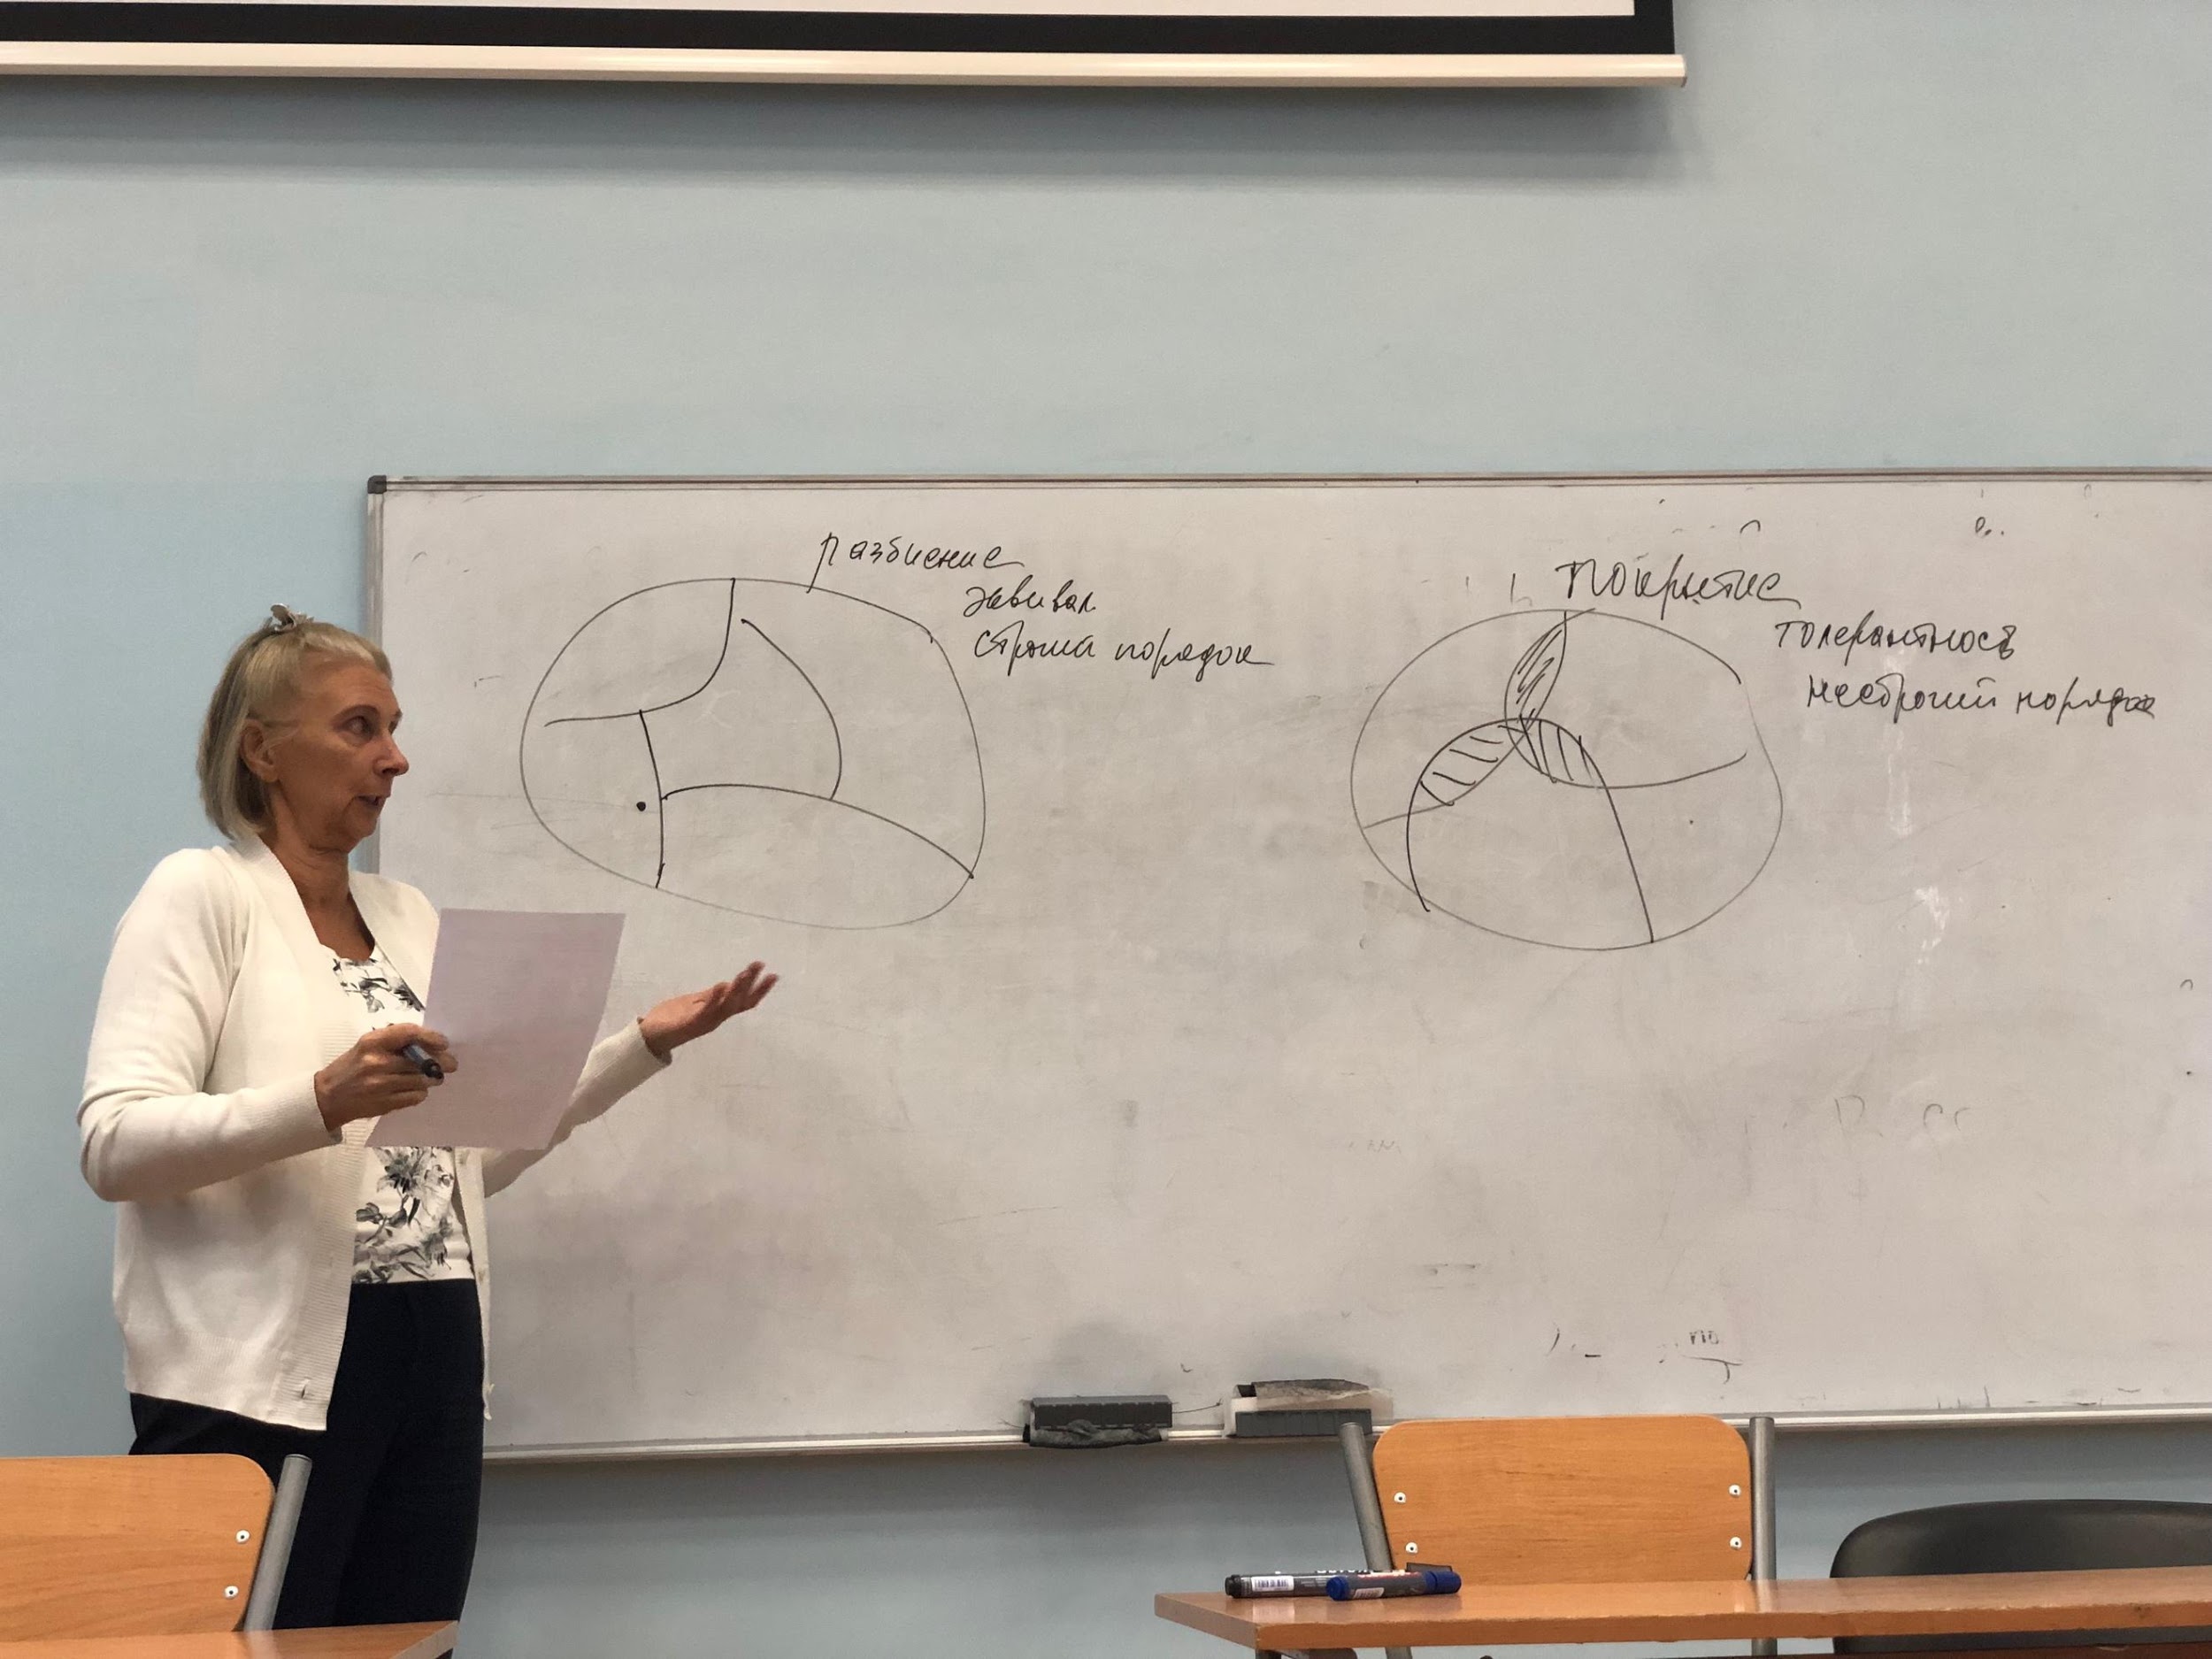 разбиение
эквивал
строгий порядок
покрытие
толерантность
нестрогий порядок